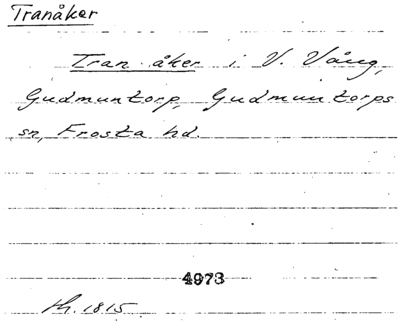 Tranåker
Tran åker i V. Vång,
Gudmuntorp, Gudmuntorps
sn, Frosta hd.
4973
1815